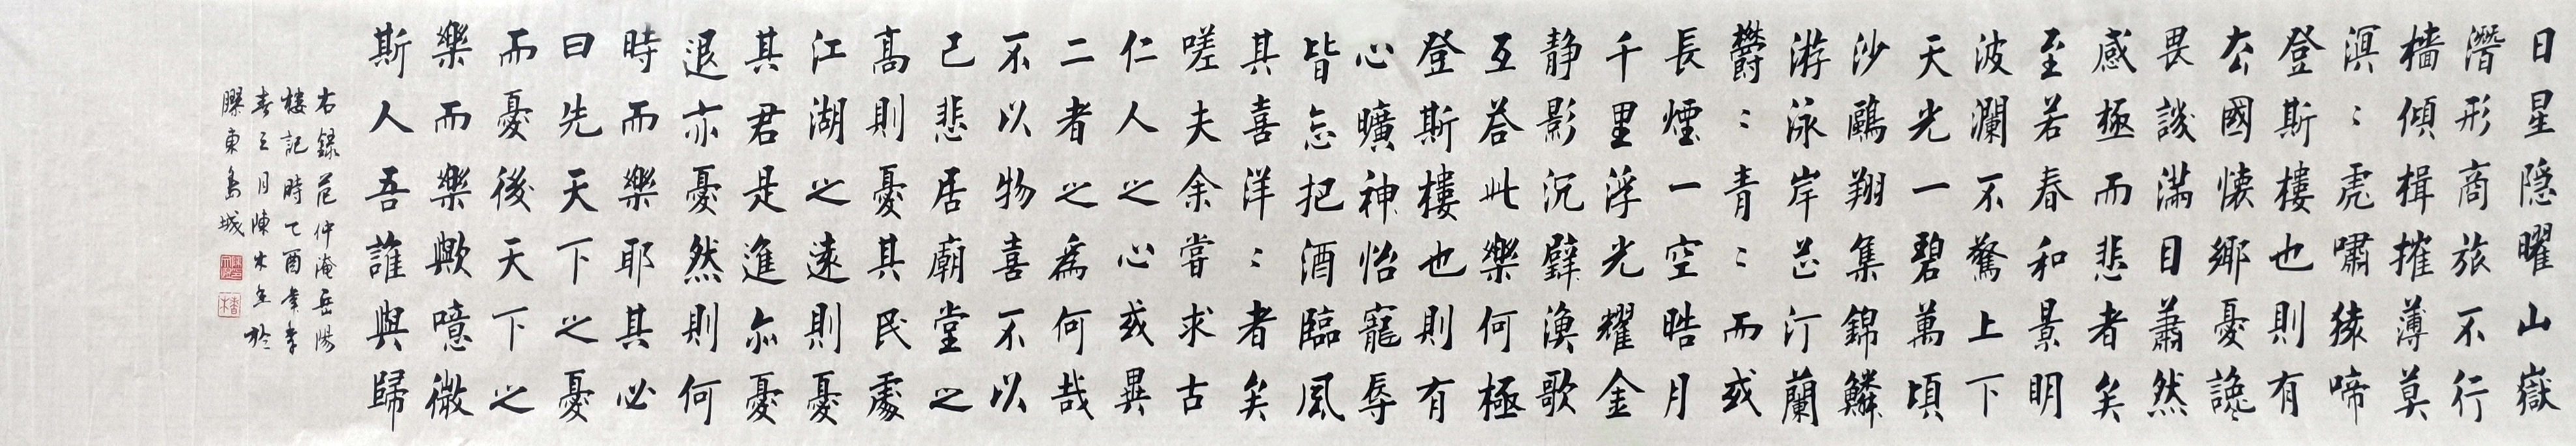 日星隠曜山嶽
潛形商旅不行
檣傾楫摧薄莫
溟〻虎嘯猿啼
登斯樓也則有
去國懷鄉憂讒
畏譏滿目蕭然
感極而悲者矣
至若春和景明
波瀾不驚上下
天光一碧萬頃
沙鷗翔集錦鱗
游泳岸芷汀蘭
鬱〻青〻而或
長煙一空皓月
千里浮光耀金
静影沉璧漁歌
互答此樂何極
登斯樓也則有
心曠神怡寵辱
皆忘把酒臨風
其喜洋〻者矣
嗟夫余嘗求古
仁人之心或異
二者之為何哉
不以物喜不以
己悲居廟堂之
高則憂其民處
江湖之遠則憂
其君是進亦憂
退亦憂然則何
時而樂耶其必
曰先天下之憂
而憂後天下之
樂而樂歟噫微
斯人吾誰與歸
右錄范仲淹岳陽
樓記時乙酉年季
春三月陳木於
膠東島城